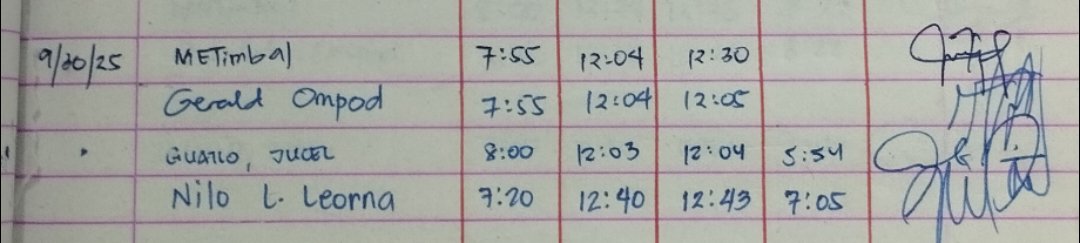 9/30/25 METimbal 7:55 12:04 12:30
Gerald Ompod 7:55 12:04 12:05
" GUATLO, JUCEL 8:00 12:03 12:04 5:54
Nilo L. Leorna 7:20 12:40 12:43 7:05